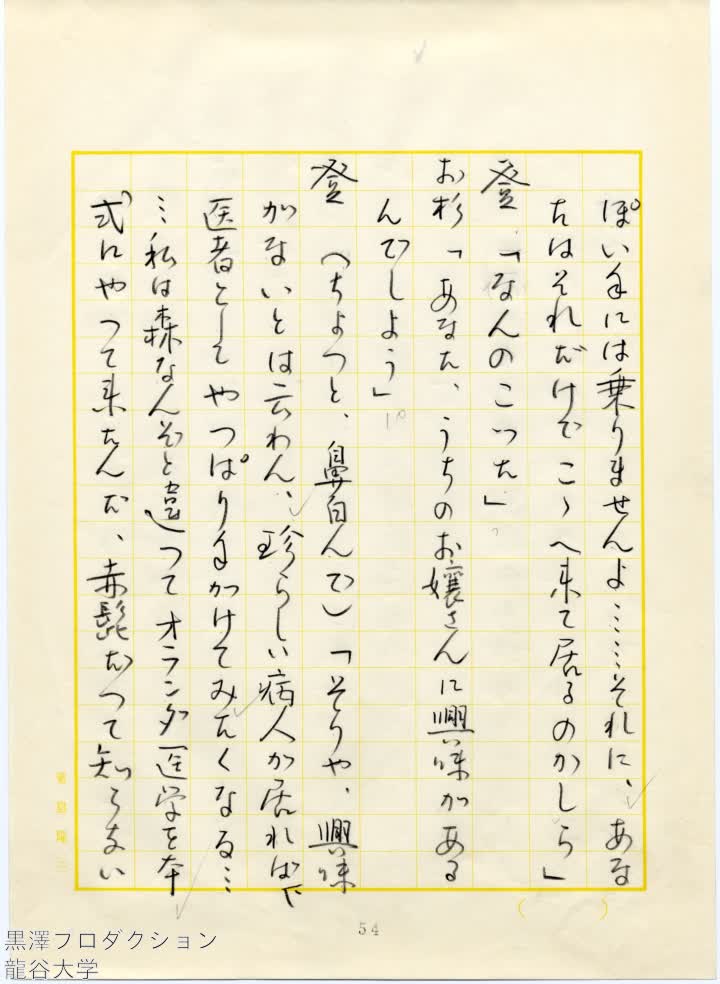 ぽい手には乗りませんよ……それに、あな
たはそれだけでこゝへ来て居るのかしら」
登 「なんのこった」
お杉「あなた、うちのお嬢さんに興味がある
んでしよう」
登 (ちよつと、鼻白んで)「そりや、興味
がないとは云わん、珍らしい病人が居れば、
医者としてやつぱり手がけてみたくなる…
…私は森なんぞと違つてオランダ医学を本
式にやつて来たんだ、赤髭だつて知らない
54
菊島隆三
黒澤プロダクション
龍谷大学